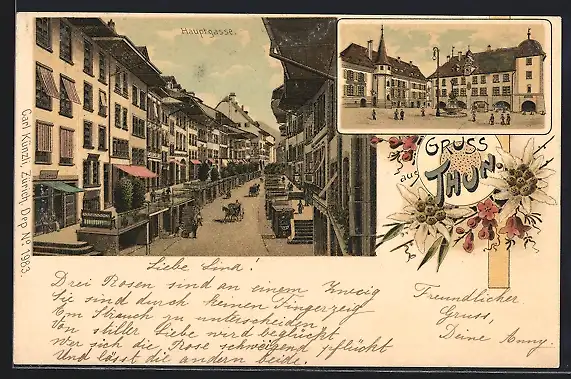 Hauptgasse.
GRUSS
aus
THUN.
Carl Künzli, Zürich, Dep. No 1983.
Liebe Lina!
Drei Rosen sind an einem Zweig
Sie sind durch keinen Fingerzeig
Am Strauch zu unterscheiden
Von stiller Liebe wird beglückt
Wer sich die Rose schweigend pflückt
Und lässt die andern beide.
Freundlicher
Gruss,
Deine Anny.